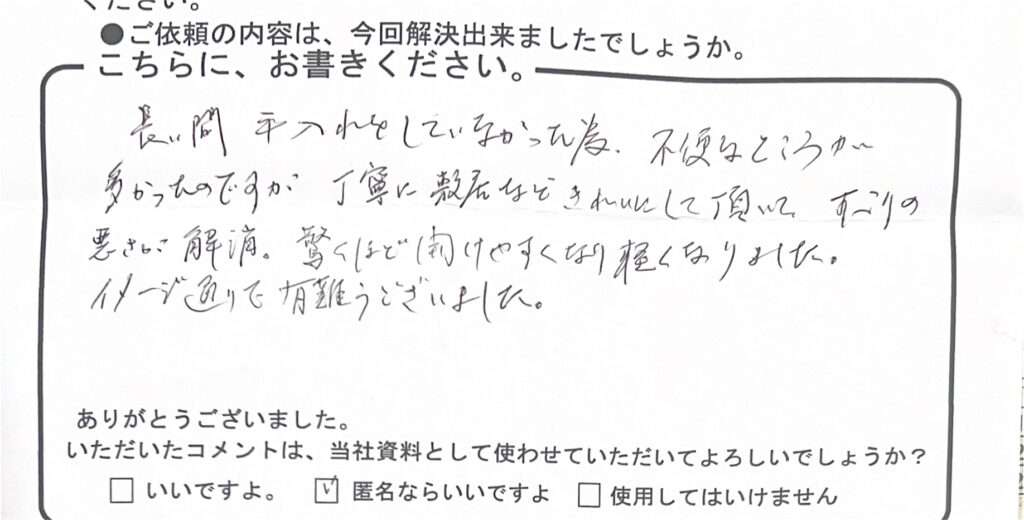 ください。
●ご依頼の内容は、今回解決出来ましたでしょうか。
こちらに、お書きください。
長い間 手入れをしていなかった為、不便なところが
多かったのですが 丁寧に敷居などきれいにして頂いて、すべりの
悪さも解消。驚くほど開けやすくなり軽くなりました。
イメージ通りで有難うございました。
ありがとうございました。
いただいたコメントは、当社資料として使わせていただいてよろしいでしょうか？
□ いいですよ。 ☑ 匿名ならいいですよ □ 使用してはいけません